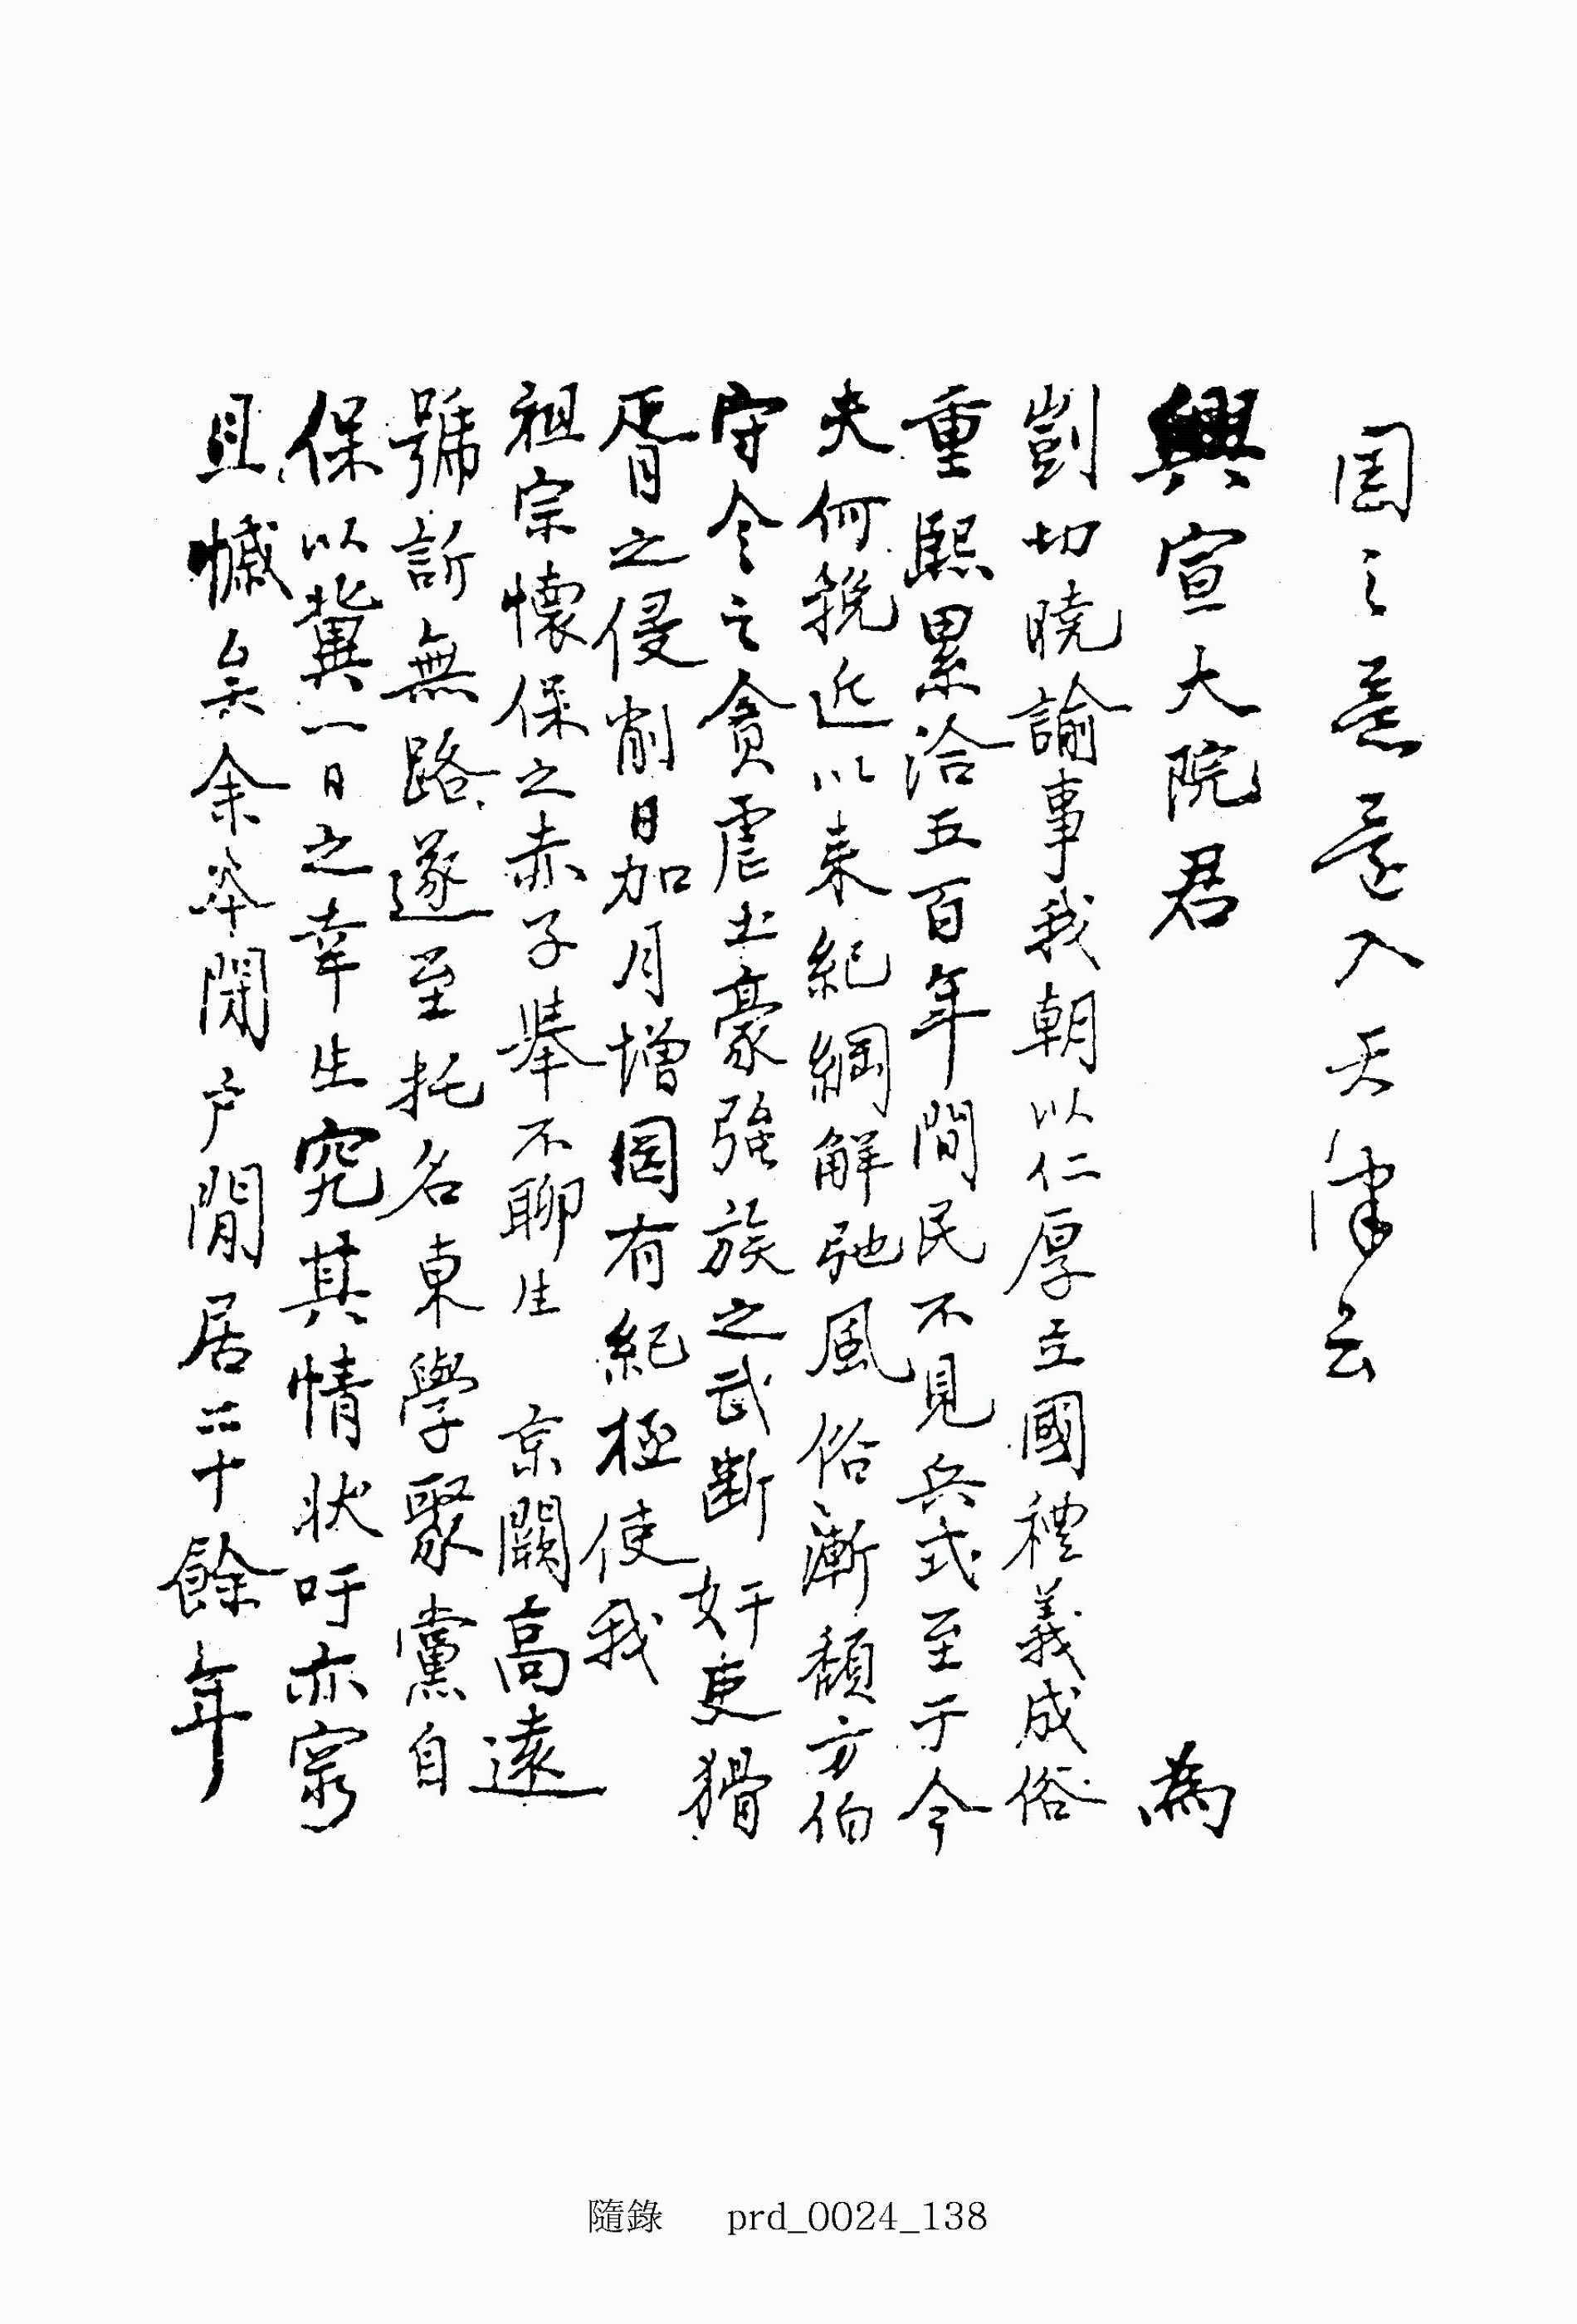 國之意還入天津云
興宣大院君 為
剴切曉諭事我朝以仁厚立國禮義成俗
重熙累洽五百年間民不見兵式至于今
夫何挽近以来紀綱解弛風俗漸頹方伯
守令之貪虐土豪強族之武斷奸吏猾
胥之侵削日加月增罔有紀極使我
祖宗懷保之赤子擧不聊生 京闕高遠
號訴無路遂至托名東學聚黨自
保以冀一日之幸生究其情状吁亦窮
且慽矣余本閉户閒居二十餘年
隨錄 prd_0024_138